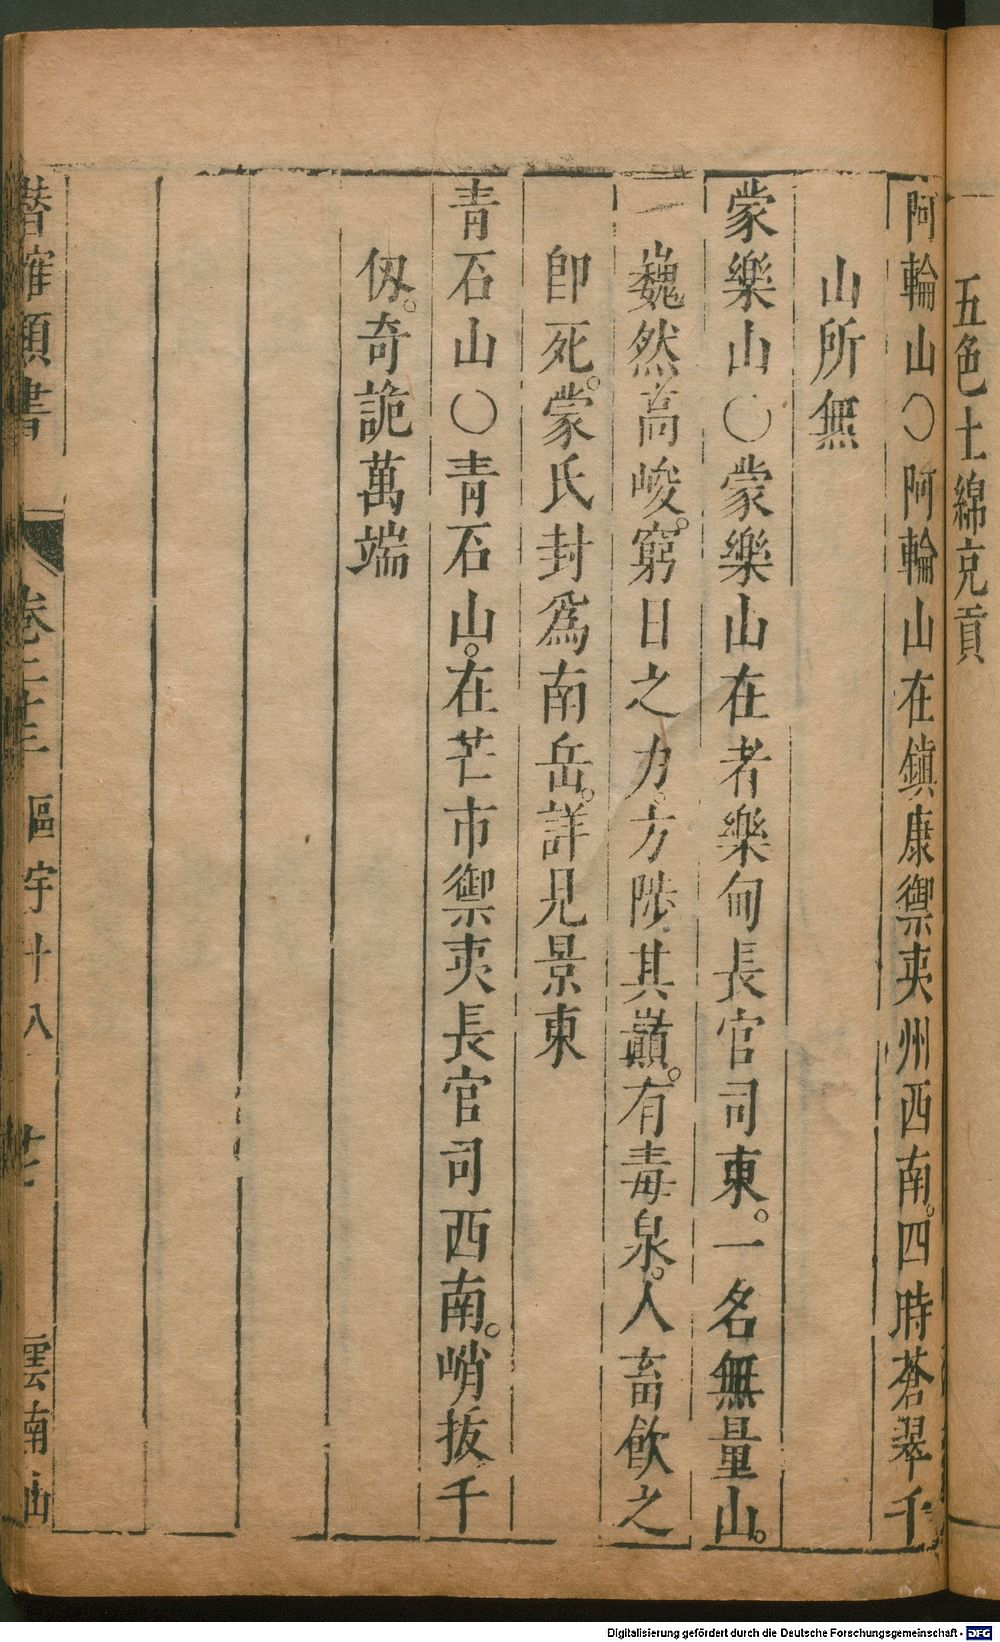 五色土綿充貢
阿輪山〇阿輪山在鎮康禦夷州西南。四時蒼翠千
山所無
蒙樂山〇蒙樂山在者樂甸長官司東。一名無量山。
巍然高峻。窮日之力。方陟其巔。有毒泉。人畜飲之
卽死。蒙氏封爲南岳。詳見景東
青石山〇青石山。在芒市禦夷長官司西南。峭拔千
仭。奇詭萬端
潛確類書 卷 區宇十八 雲南
Digitalisierung gefördert durch die Deutsche Forschungsgemeinschaft - DFG